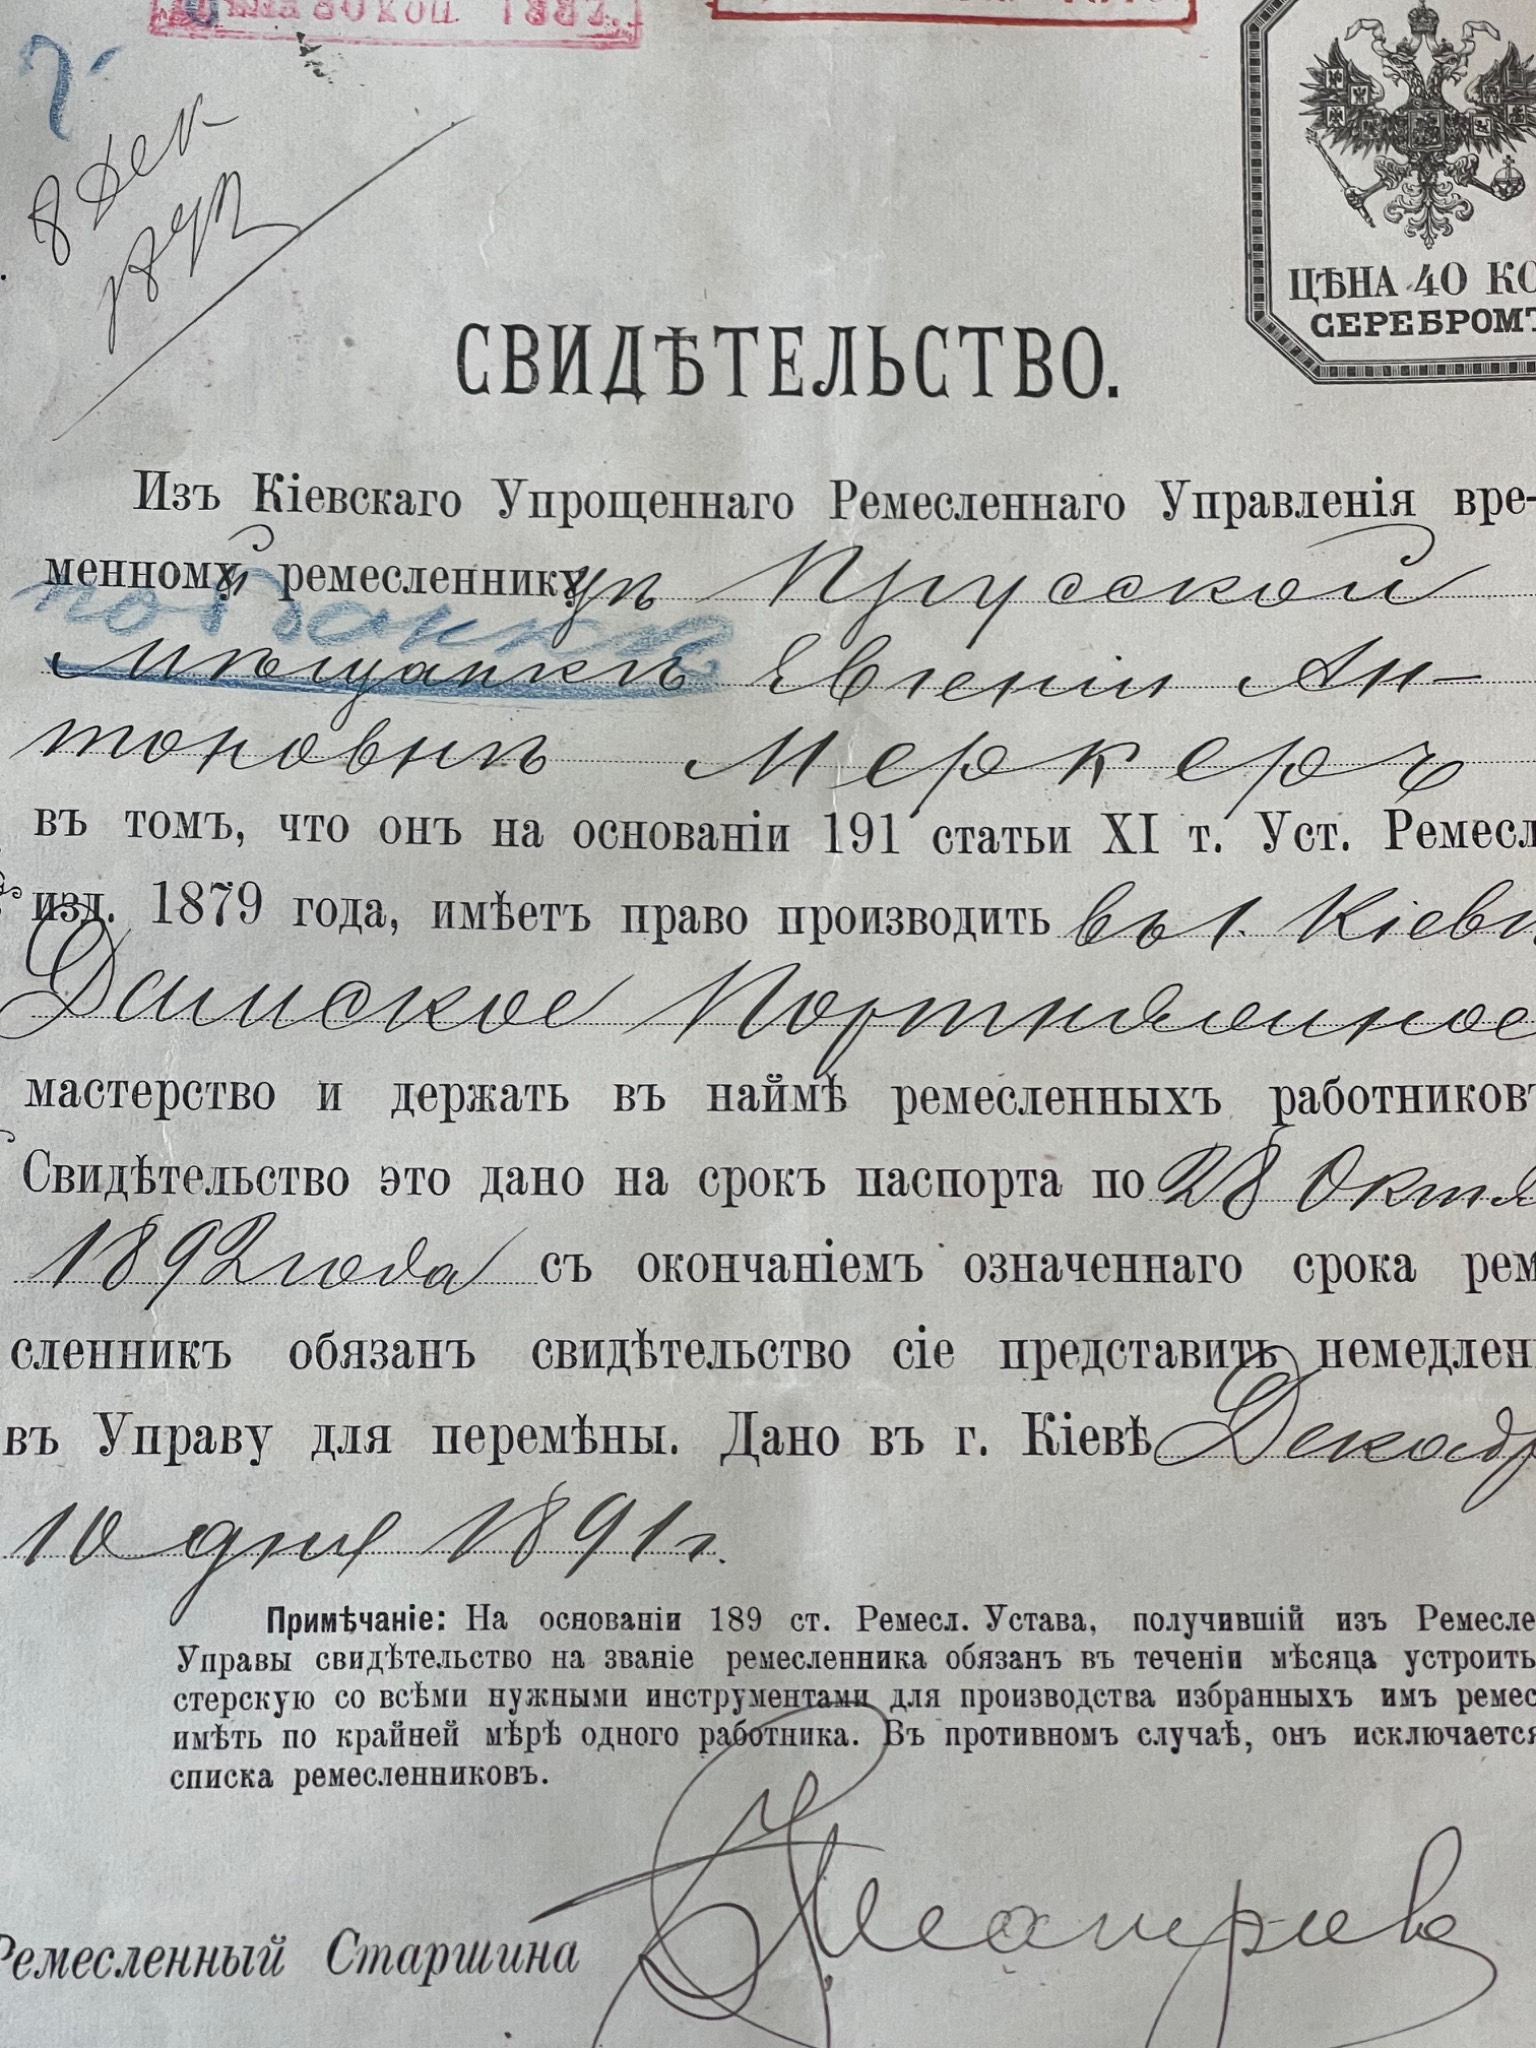 80 коп. 1887.
8 Дек
ЦѢНА 40 КО
СЕРЕБРОМЪ
СВИДѢТЕЛЬСТВО.
Изъ Кіевскаго Упрощеннаго Ремесленнаго Управленія вре-
менному ремесленнику Прусской
Мѣщанкѣ Евгеніи Ан-
тоновнѣ Меркеръ
въ томъ, что онъ на основаніи 191 статьи XI т. Уст. Ремесл
изд. 1879 года, имѣетъ право производить въ г. Кіевѣ
Дамское Портняжное
мастерство и держать въ наймѣ ремесленныхъ работниковъ
Свидѣтельство это дано на срокъ паспорта по 28 Октя
1892 года съ окончаніемъ означеннаго срока рем
сленникъ обязанъ свидѣтельство сіе представить немедлен
въ Управу для перемѣны. Дано въ г. Кіевѣ Декабр
10 дня 1891 г.
Примѣчаніе: На основаніи 189 ст. Ремесл. Устава, получившій изъ Ремесле
Управы свидѣтельство на званіе ремесленника обязанъ въ теченіи мѣсяца устроить
стерскую со всѣми нужными инструментами для производства избранныхъ имъ ремес
имѣть по крайней мѣрѣ одного работника. Въ противномъ случаѣ, онъ исключается
списка ремесленниковъ.
Ремесленный Старшина